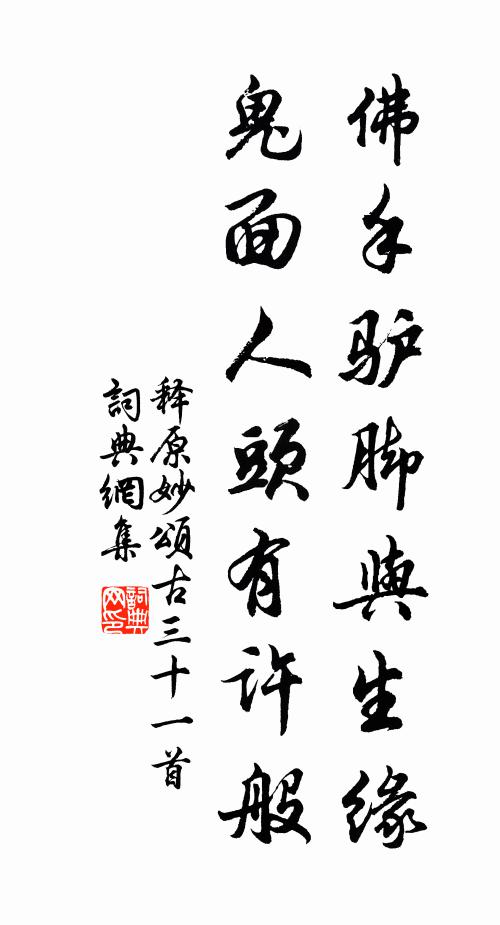 佛手驴脚與生缘
鬼面人頭有許般
释原妙頌古三十一首
詞典網集
詞典网印